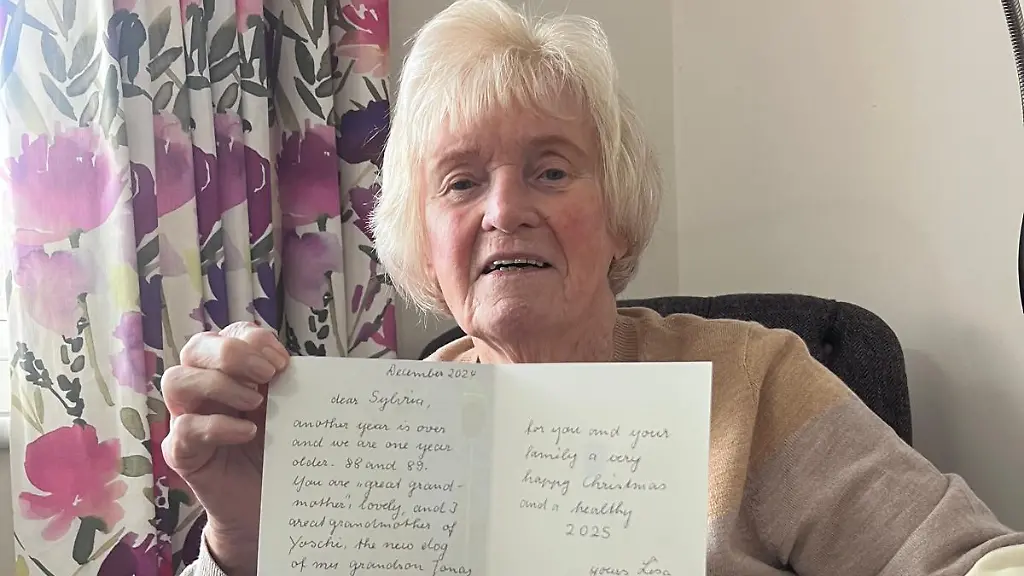 December 2024
dear Sylvia,
another year is over
and we are one year
older - 88 and 89.
You are „great grand-
mother", lovely, and I
great grandmother of
Yoschi, the new dog
of my grandson Jonas
for you and your
family a very
happy Christmas
and a healthy
2025
yours Lisa